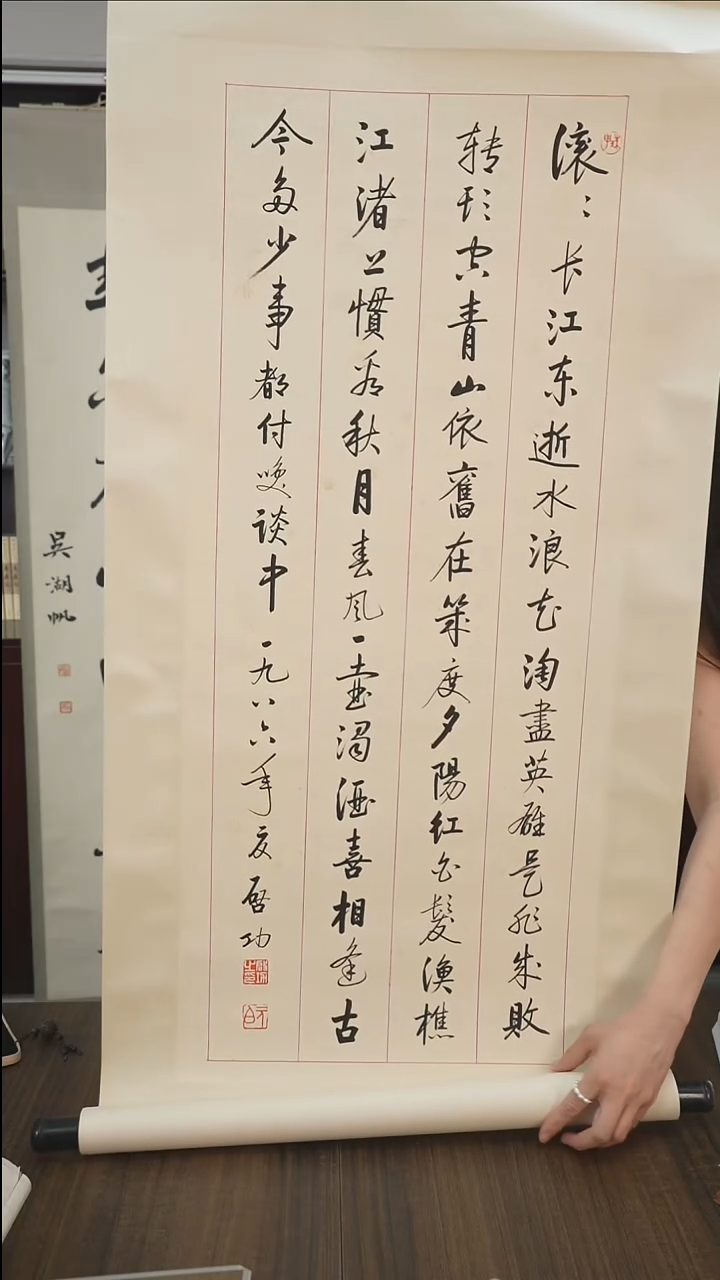 滚〻长江东逝水浪花淘盡英雄是非成敗
转头空青山依舊在幾度夕陽红白髮渔樵
江渚上慣看秋月春风一壶濁酒喜相逢古
今多少事都付咲谈中一九八六年夏启功
元白
吳湖帆